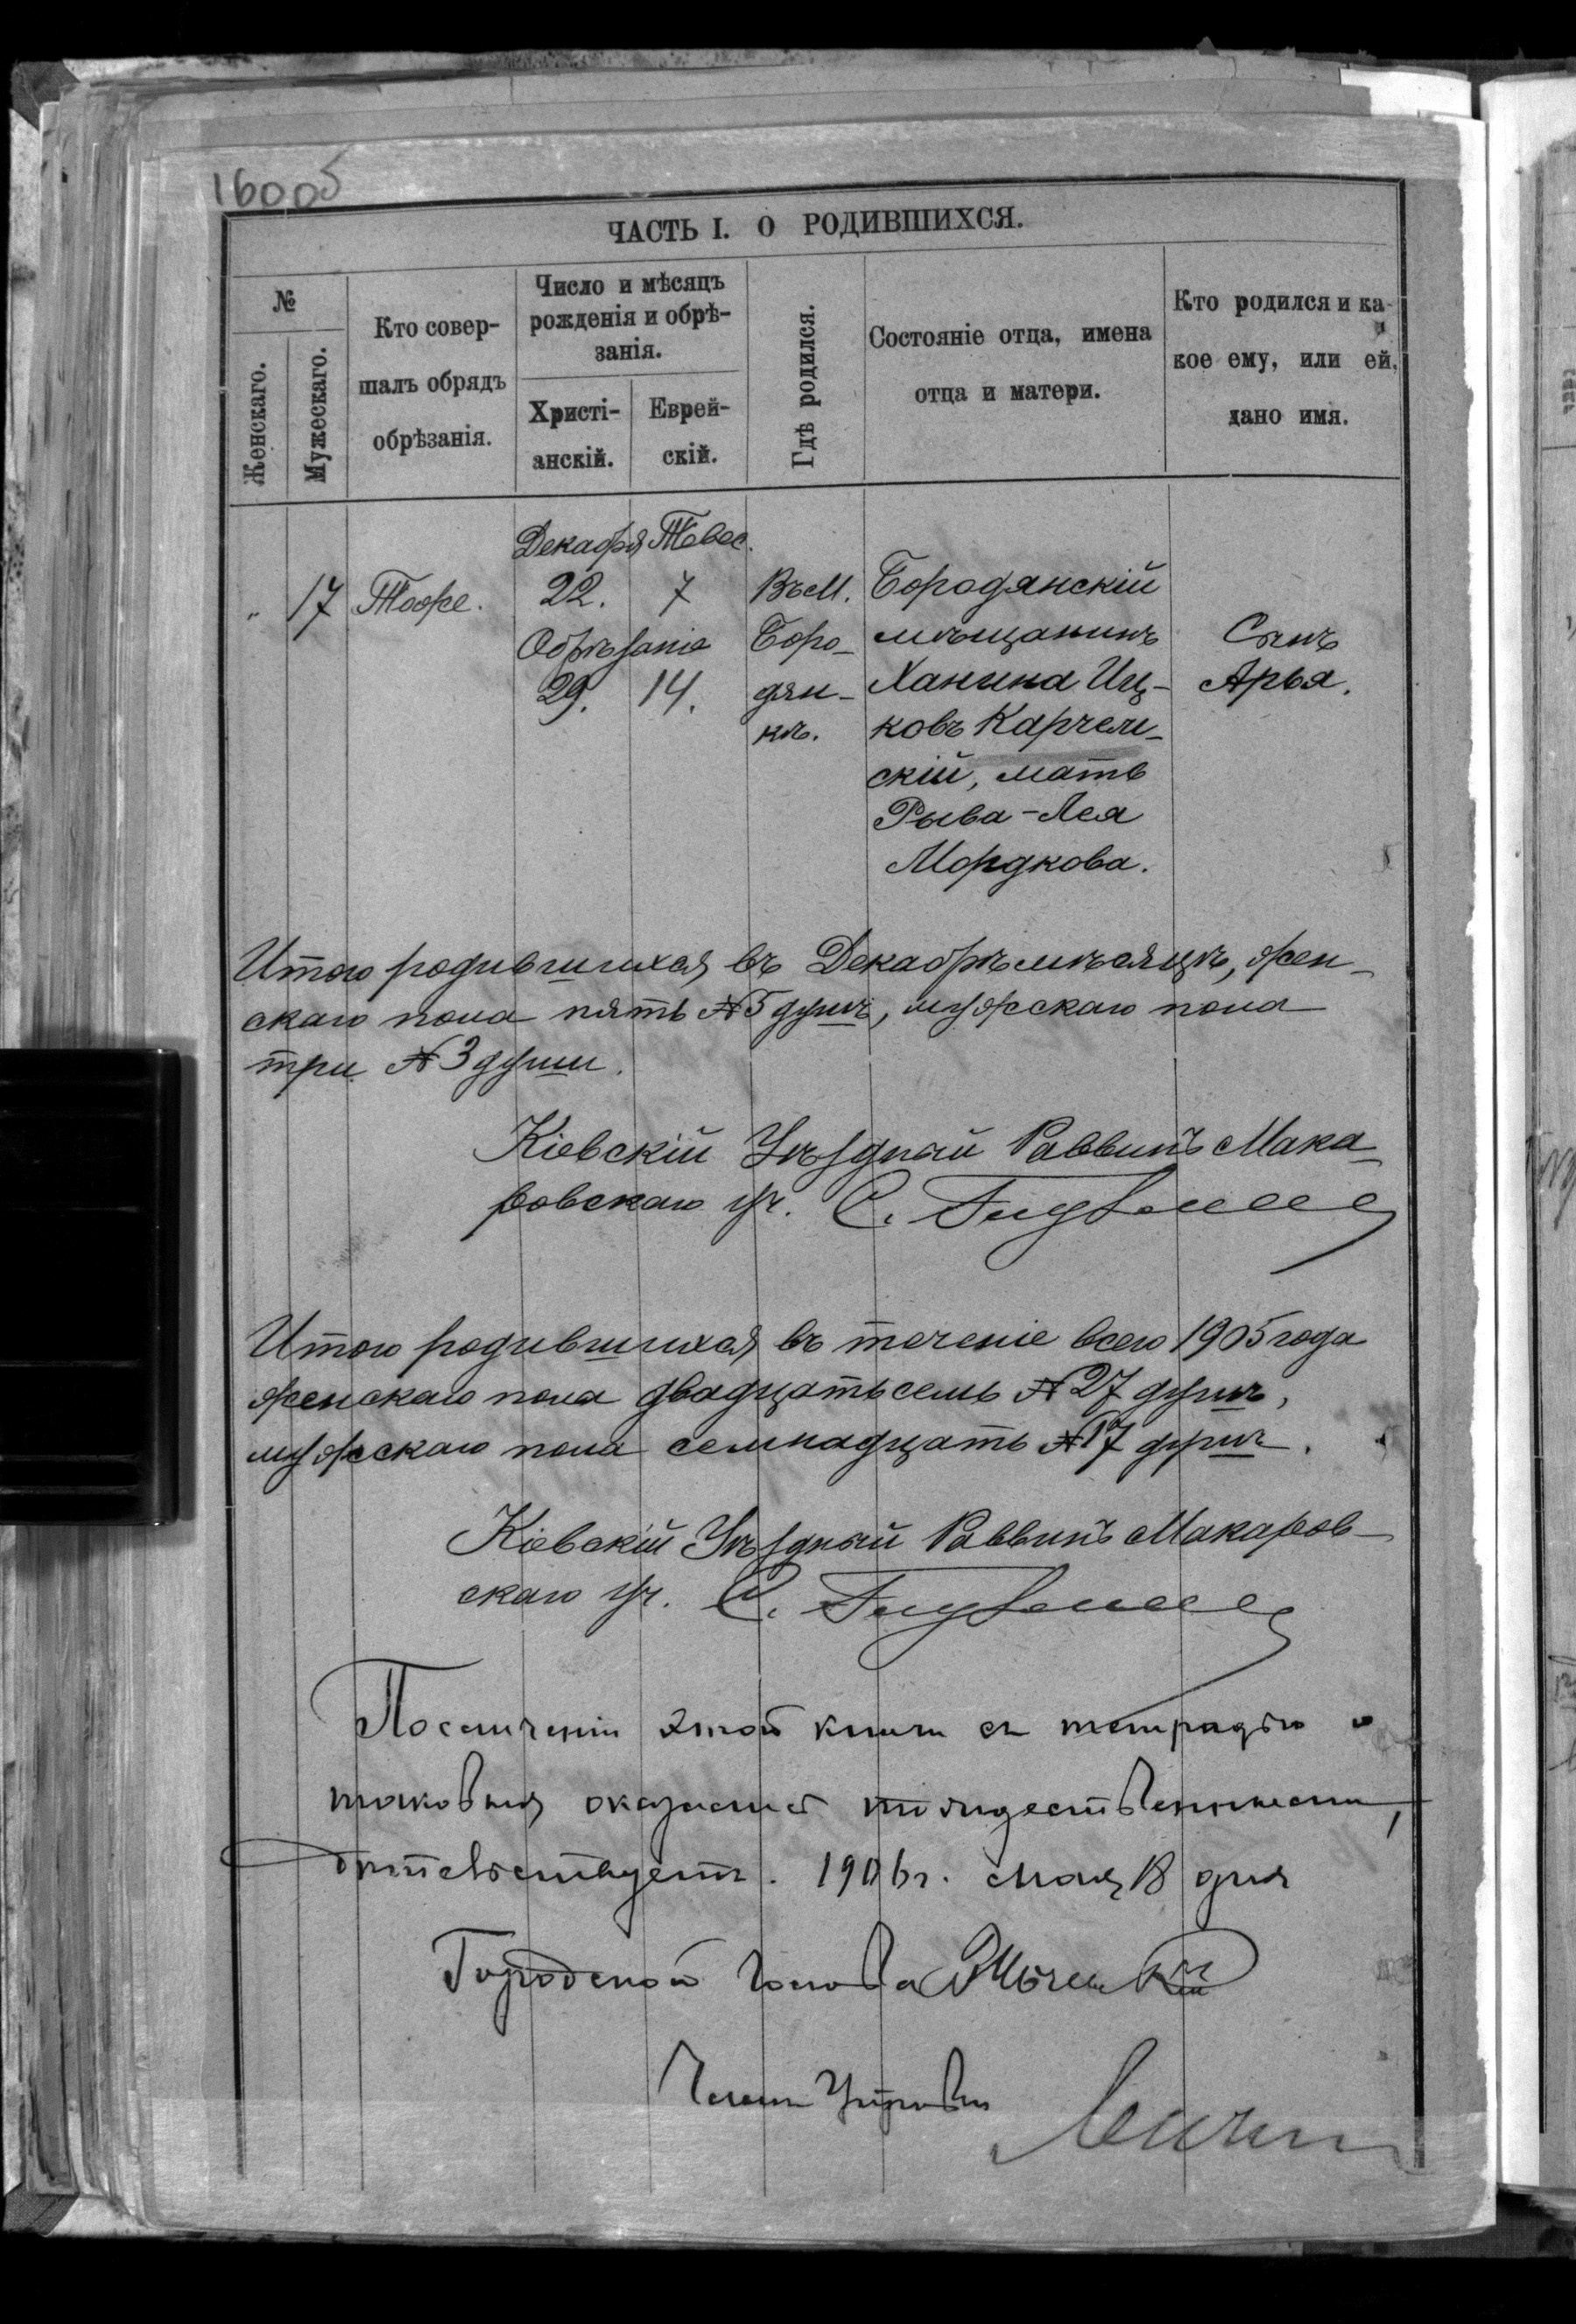 160об
ЧАСТЬ I. О РОДИВШИХСЯ.
№
Женскаго.
Мужескаго.
Кто совер-
шалъ обрядъ
обрѣзанія.
Число и мѣсяцъ
рожденія и обрѣ-
занія.
Христі-
анскій.
Еврей-
скій.
Гдѣ родился.
Состояніе отца, имена
отца и матери.
Кто родился и ка-
кое ему, или ей,
дано имя.
Декабря Тевес.
" 17 Тоже. 22. 7
Обрѣзаніе
29. 14.
Въ м.
Боро-
дян-
кѣ.
Бородянскій
мѣщанинъ
Ханина Иц-
ковъ Карчем-
скій, мать
Рыва-Лея
Мордкова.
Сынъ
Арья.
Итого родившихся въ Декабрѣ мѣсяцѣ, жен-
скаго пола пять №5 душъ, мужскаго пола
три №3 души.
Кіевскій Уѣздный Раввинъ Мака-
ровскаго уч. С.
Итого родившихся въ теченіе всего 1905 года
женскаго пола двадцать семь №27 душъ,
мужскаго пола семнадцать №17 душъ.
Кіевскій Уѣздный Раввинъ Макаров-
скаго уч. С.
По сличеніи этой книги съ тетрадью
оказалась тождественности,
1906г. мая 18 дня
Городской Голова
Членъ Управы